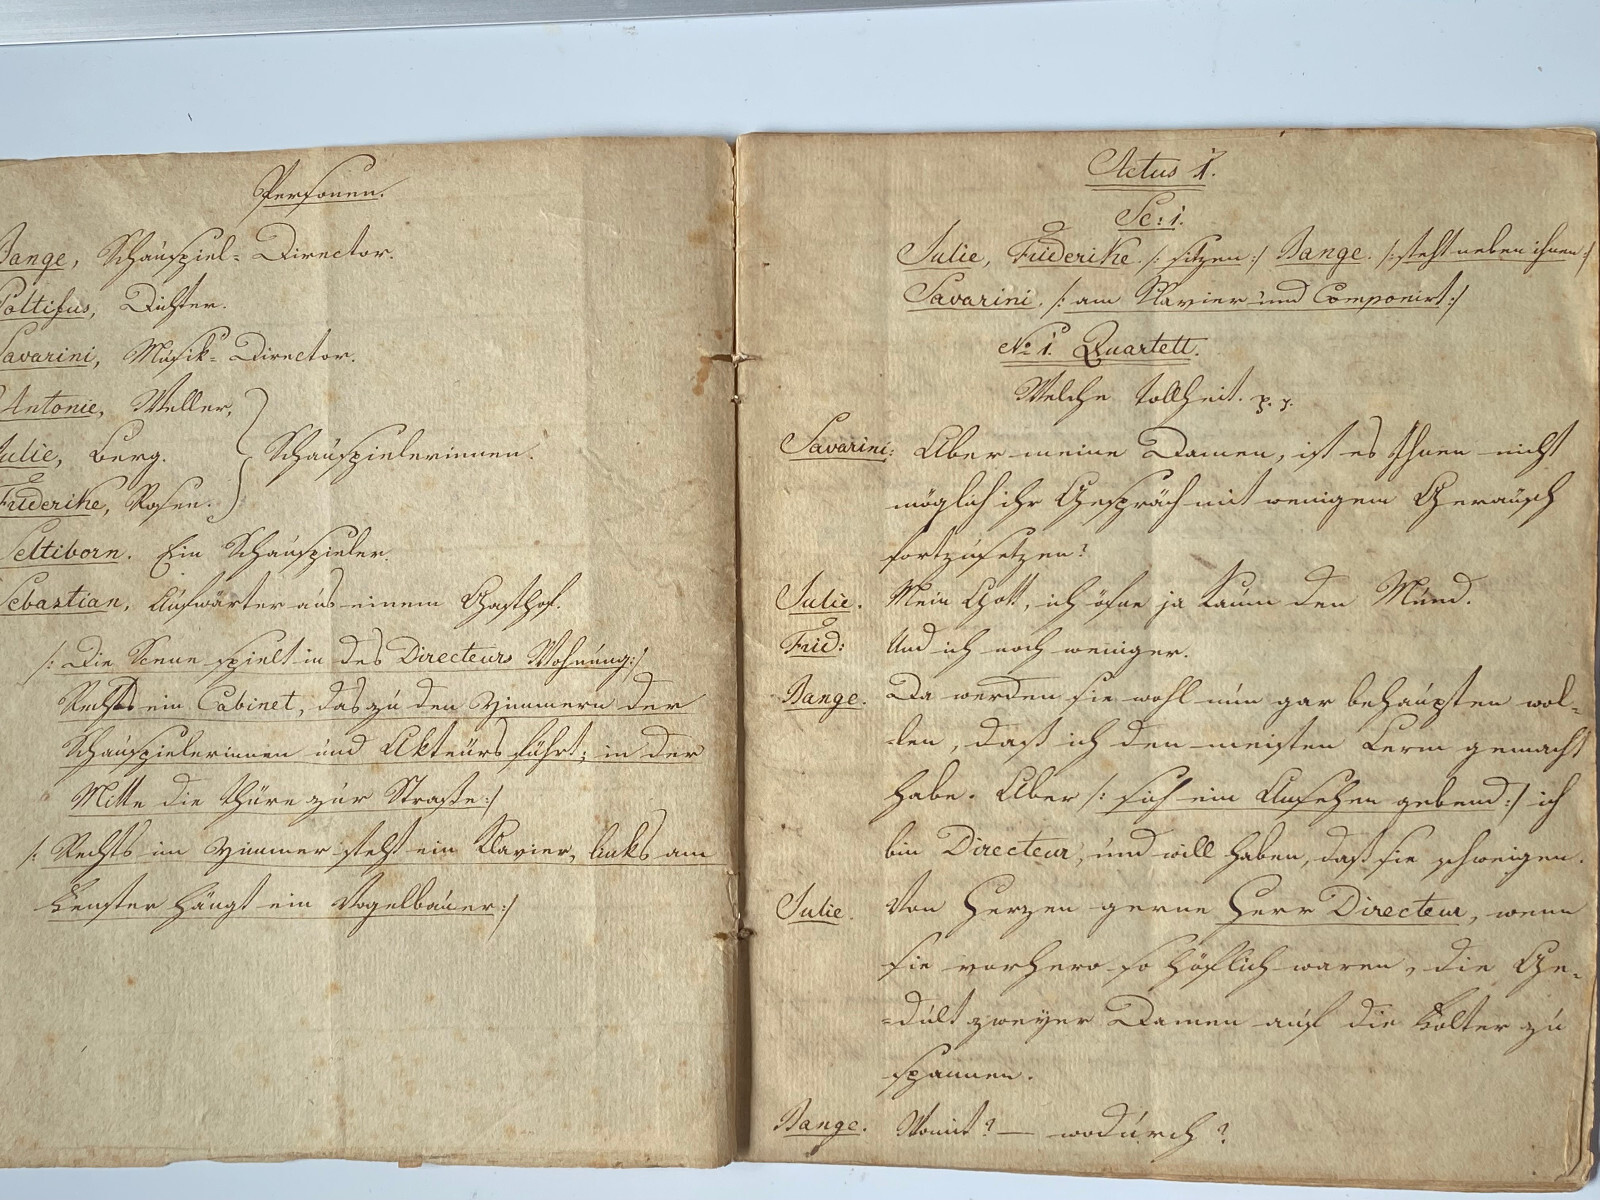 Personen.
Bange, Schauspiel-Director.
Poltifus, Dichter.
Savarini, Musik-Director.
Antonie, Weller,
Julie, Berg.
Schauspielerinnen.
Friderike, Rosen.
Seltiborn. Ein Schauspieler.
Sebastian, Aufwärter aus einem Gasthof.
/: Die Scene spielt in des Directeurs Wohnung:/
Rechts ein Cabinet, das zu den Zimmern der
Schauspielerinnen und Akteurs führt; in der
Mitte die Thüre zur Straße:/
/: Rechts im Zimmer steht ein Klavier, links am
Fenster hängt ein Vogelbauer:/
Actus 1.
Sc: 1.
Julie, Friderike. /: sitzen:/ Bange. /: steht neben ihnen:/
Savarini. /: am Klavier und Componirt:/
No 1. Quartett.
Welche Tollheit. p. p.
Savarini: Aber meine Damen, ist es Ihnen nicht
möglich ihr Gespräch mit wenigem Geräusch
fortzusetzen?
Julie. Mein Gott, ich öfne ja kaum den Mund.
Frid: Und ich noch weniger.
Bange. Da werden sie wohl nun gar behaupten wol-
-len, daß ich den meisten Lerm gemacht
habe. Aber /: sich ein Ansehen gebend:/ ich
bin Directeur, und will haben, daß sie schweigen.
Julie. Von Herzen gerne Herr Directeur, wenn
sie vorhero so höflich waren, die Ge-
-dult zweyer Damen auf die Folter zu
spannen.
Bange. Womit? — wodurch?